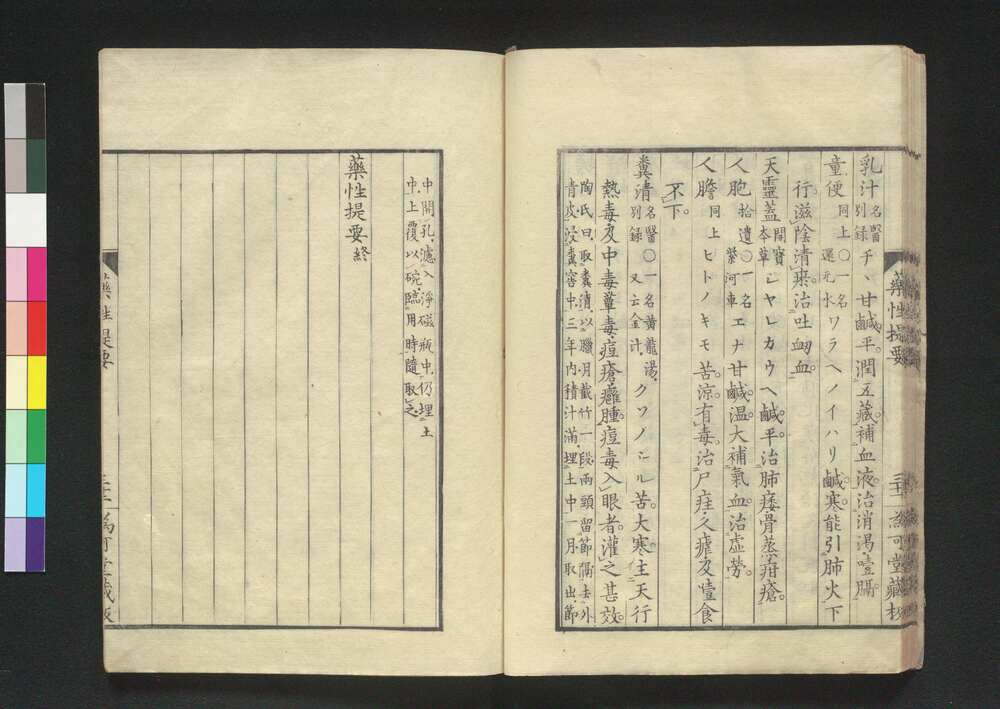 乳汁 名醫別録 チヽ 甘鹹平。潤五藏。補血液。治消渇。噎膈。
童便 同上〇一名還元水 ワラヘノイハリ 鹹。寒。能引肺火下
行。滋陰清
治吐衂血。
天靈蓋 開寶本草 シヤレカウヘ 鹹。平。治肺痿骨蒸。疳瘡。
人胞 拾遺〇一名紫河車 エナ 甘鹹。温。大補氣血。治虚勞。
人膽 同上 ヒトノキモ 苦。涼。有毒。治尸疰。久瘧及噎食
不下。
糞清 名醫別録〇一名黄龍湯。又云金汁。 クソノシル 苦。大寒。主天行
熱毒及中毒蕈毒。痘瘡癰腫。痘毒入眼者。灌之甚效。
陶氏曰。取糞清。以臘月截竹一段。兩頭留節。隔去外
青皮。浸糞窖中。三年内積汁滿。埋土中一月取出。節
藥性提要
三十一 爲可堂藏板
中開一孔。濾入淨磁瓶中。仍埋土
中。上覆以碗。臨用時隨取之。
藥性提要終
藥性提要